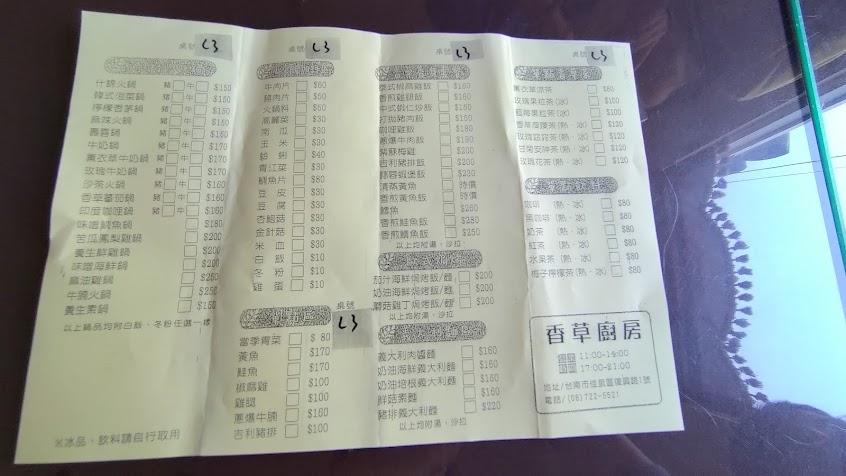 桌號 L3
什錦火鍋 豬 牛 $150
韓式泡菜鍋 豬 牛 $150
檸檬香茅鍋 豬 牛 $150
麻辣火鍋 豬 牛 $160
壽喜鍋 豬 牛 $160
牛奶鍋 豬 牛 $170
薰衣草牛奶鍋 豬 牛 $170
玫瑰牛奶鍋 豬 牛 $170
沙茶火鍋 豬 牛 $160
香草蕃茄鍋 豬 牛 $160
印度咖哩鍋 豬 牛 $160
味噌鯛魚鍋 $180
苦瓜鳳梨雞鍋 $200
養生鮮雞鍋 $200
味噌海鮮鍋 $200
麻油雞鍋
牛腩火鍋 $250
養生素鍋 $150
以上鍋品均附白飯、冬粉任選一樣
※冰品、飲料請自行取用
桌號 L3
牛肉片 $60
豬肉片 $50
火鍋料 $50
高麗菜 $30
南瓜 $30
玉米 $30
蛤蜊 $40
青江菜 $30
鯛魚片 $80
豆皮 $30
豆腐 $30
杏鮑菇 $30
金針菇 $30
米血 $30
白飯 $10
冬粉 $10
雞蛋 $10
桌號 L3
當季青菜 $80
黃魚 $170
鮭魚 $170
椒麻雞 $100
雞腿 $100
蔥爆牛腩 $160
吉利豬排 $100
桌號 L3
泰式椒麻雞飯 $160
香煎雞腿飯 $160
中式蝦仁炒飯 $150
打拋豬肉飯 $160
咖哩雞飯 $180
蔥爆牛肉飯 $190
紫蘇梅雞 $200
吉利豬排飯 $200
蒜蓉蝦堡飯 $230
清蒸黃魚 時價
香煎黃魚飯 時價
鱈魚 $260
香煎鮭魚飯 $280
香煎鯛魚飯 $250
以上均附湯、沙拉
茄汁海鮮焗烤飯/麵 $200
奶油海鮮焗烤飯/麵 $200
蘑菇雞丁焗烤飯/麵 $200
以上均附湯、沙拉
義大利肉醬麵 $160
奶油海鮮義大利麵 $160
奶油培根義大利麵 $160
鮮菇素麵 $160
豬排義大利麵 $220
以上均附湯、沙拉
桌號 L3
薰衣草涼茶 $60
玫瑰果粒茶(冰) $100
藍莓果粒茶(冰) $100
香草蜂蜜茶(熱·冰) $120
玫瑰紓背茶(熱·冰) $120
甘菊安神茶(熱·冰) $120
玫瑰花茶(熱·冰) $120
咖啡 (熱·冰) $80
黑咖啡 (熱·冰) $80
奶茶 (熱·冰) $80
紅茶 (熱·冰) $80
水果茶 (熱·冰) $80
梅子檸檬茶(熱·冰) $80
香草廚房
11:00-14:00
17:00-21:00
地址/台南市佳里區復興路1號
電話/(06)722-5521